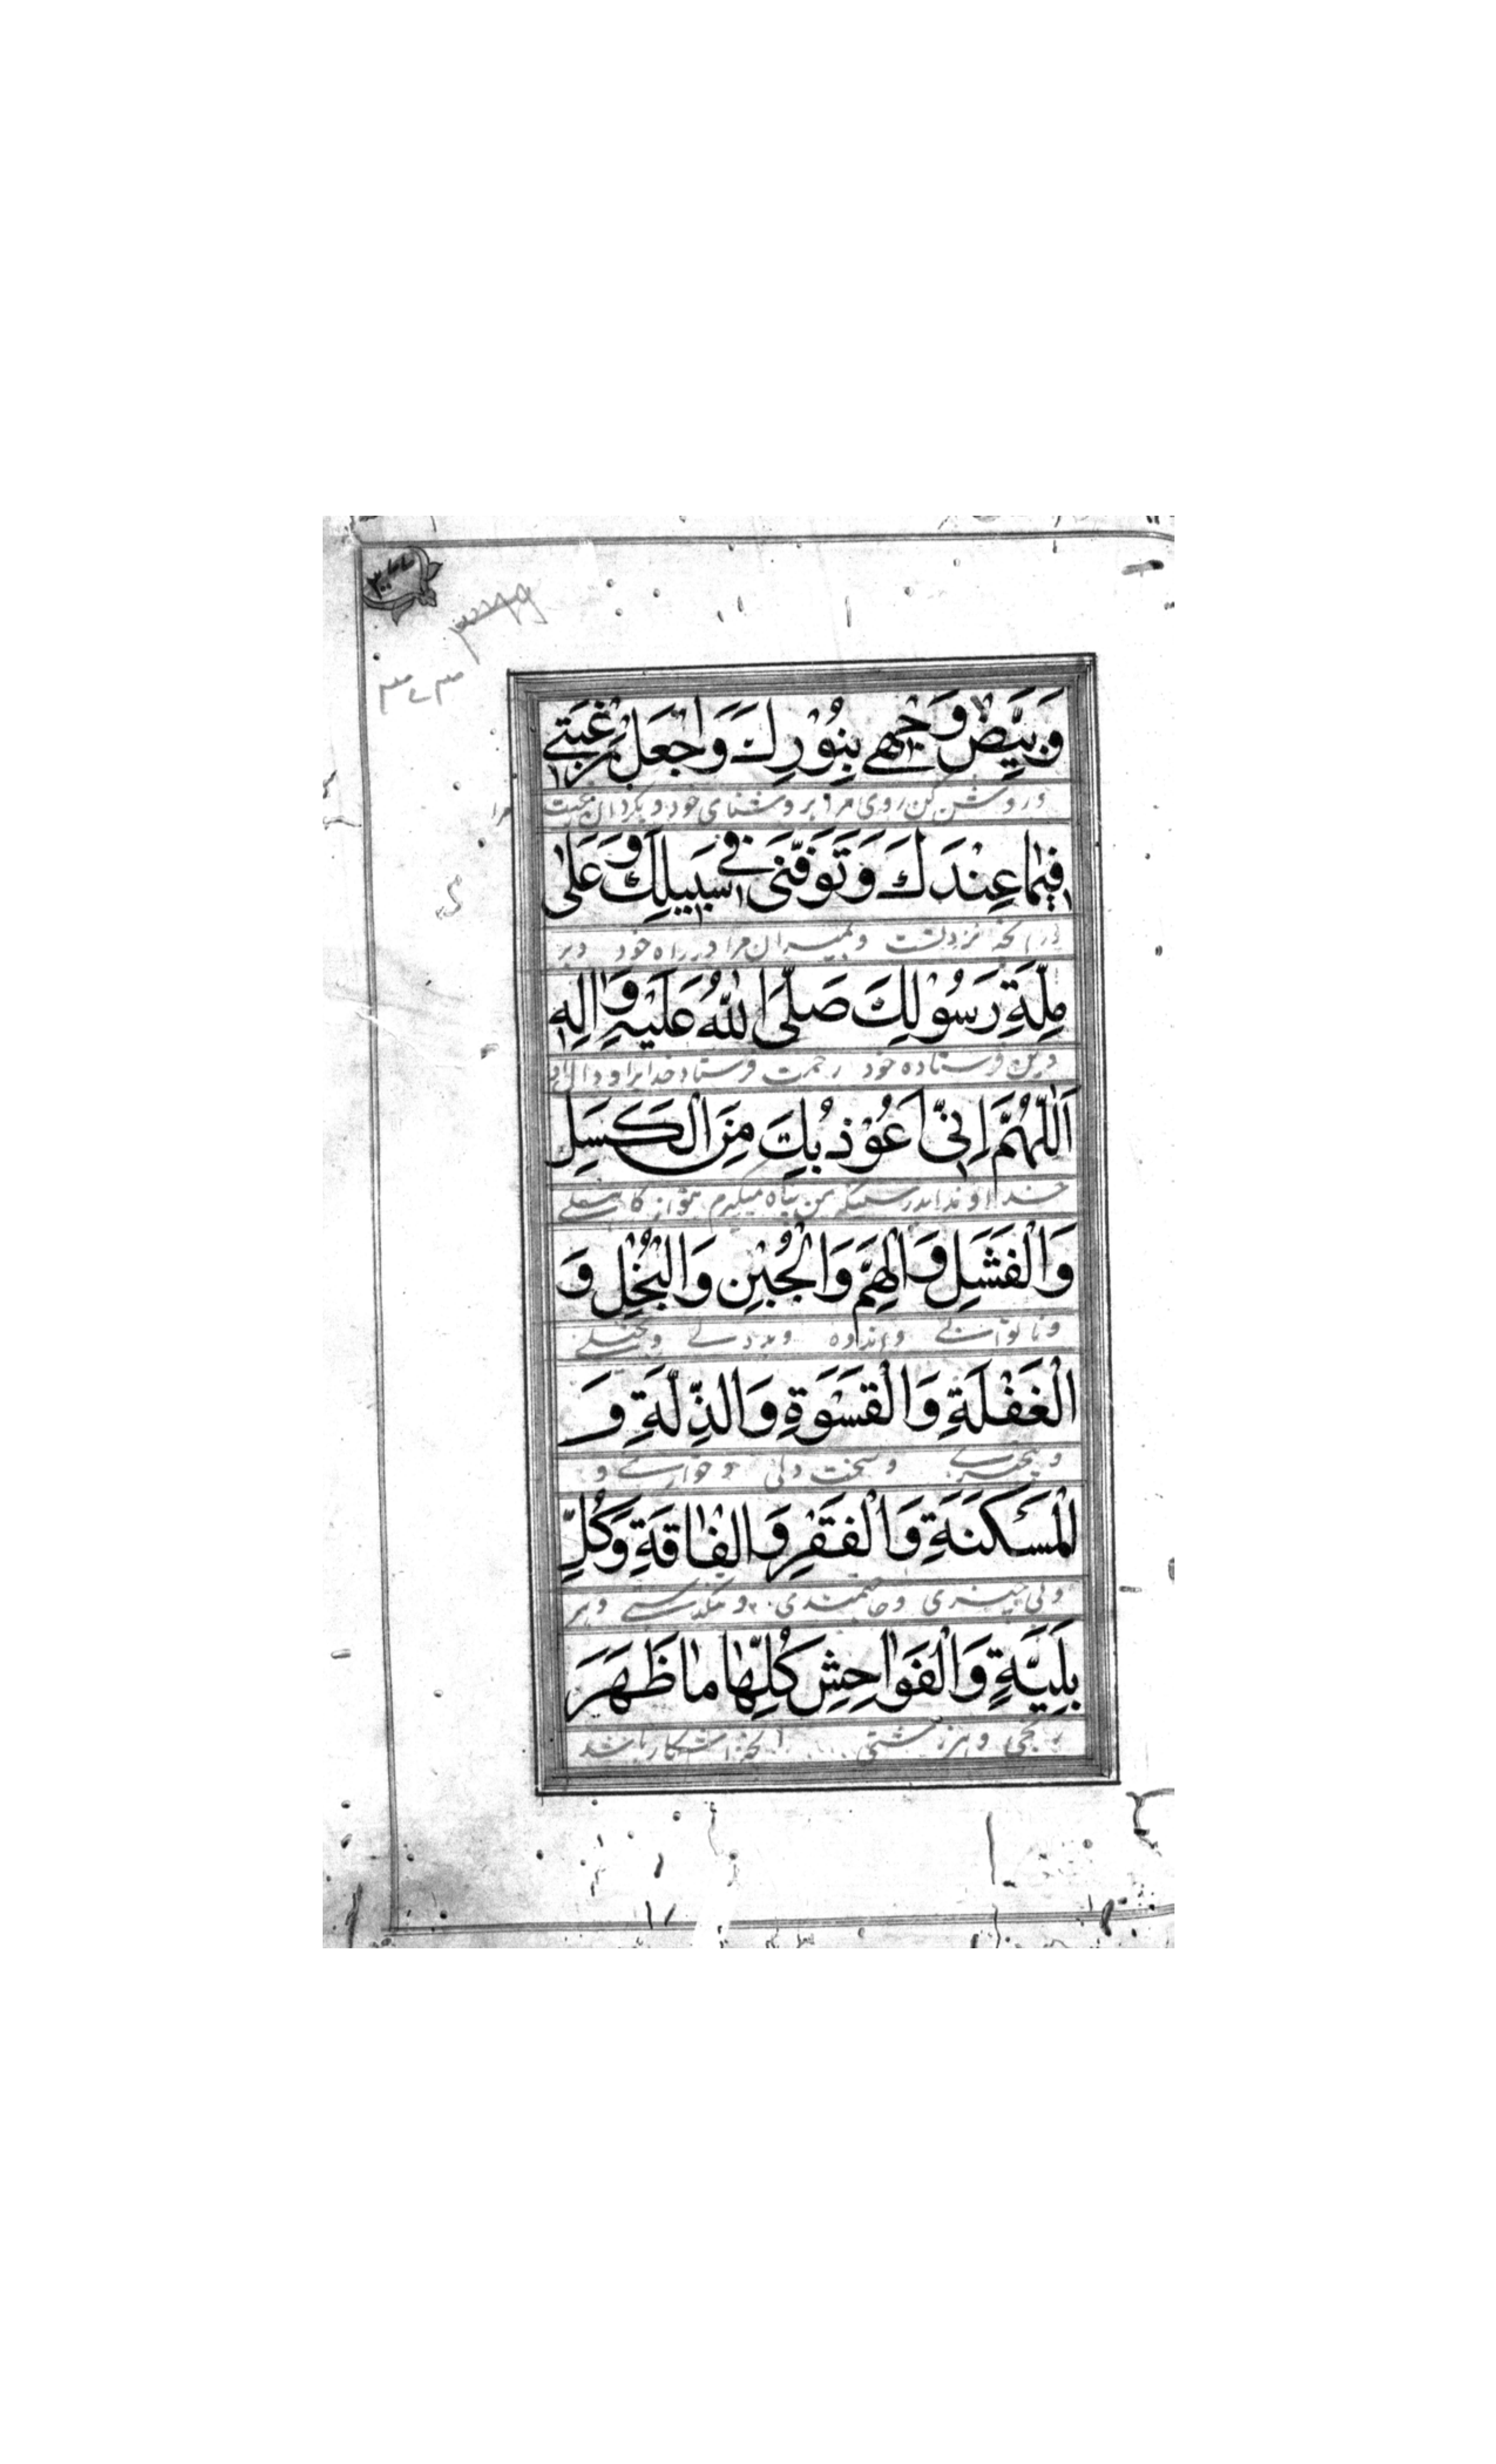 وَبَيِّضْ وَجْهِي بِنُوْرِكَ وَاجْعَلْ رَغْبَتِي
وروشن كن روی مرا بروشنای خود و بگردان محبت مرا
فِيْمَا عِنْدَكَ وَتَوَفَّنِي فِي سَبِيلِكَ وَعَلٰى
نزد تست و بمیران مرا در راه خود و بر
مِلَّةِ رَسُوْلِكَ صَلَّى اللهُ عَلَيْهِ وَاٰلِهِ
دین فرستاده خود رحمت فرستاد خدا برا و و ال
اَللّٰهُمَّ اِنِّي اَعُوْذُ بِكَ مِنَ الْكَسَلِ
خداوندا بدرستیکه من پناه میگیرم بتو از کاهلی
وَالْفَشَلِ وَالْهَمِّ وَالْجُبْنِ وَالْبُخْلِ وَ
و ناتوانی و اندوه و بددلی و بخیلی
الْغَفْلَةِ وَالْقَسْوَةِ وَالذِّلَّةِ وَ
و بیخبری و سخت دلی و خواری و
الْمَسْكَنَةِ وَالْفَقْرِ وَالْفَاقَةِ وَكُلِّ
وبی چیزی و حاجتمندی و تنگدستی و هر
بَلِيَّةٍ وَالْفَوَاحِشِ كُلِّهَا مَا ظَهَرَ
و هر زشتی آنچه آشکار باشد